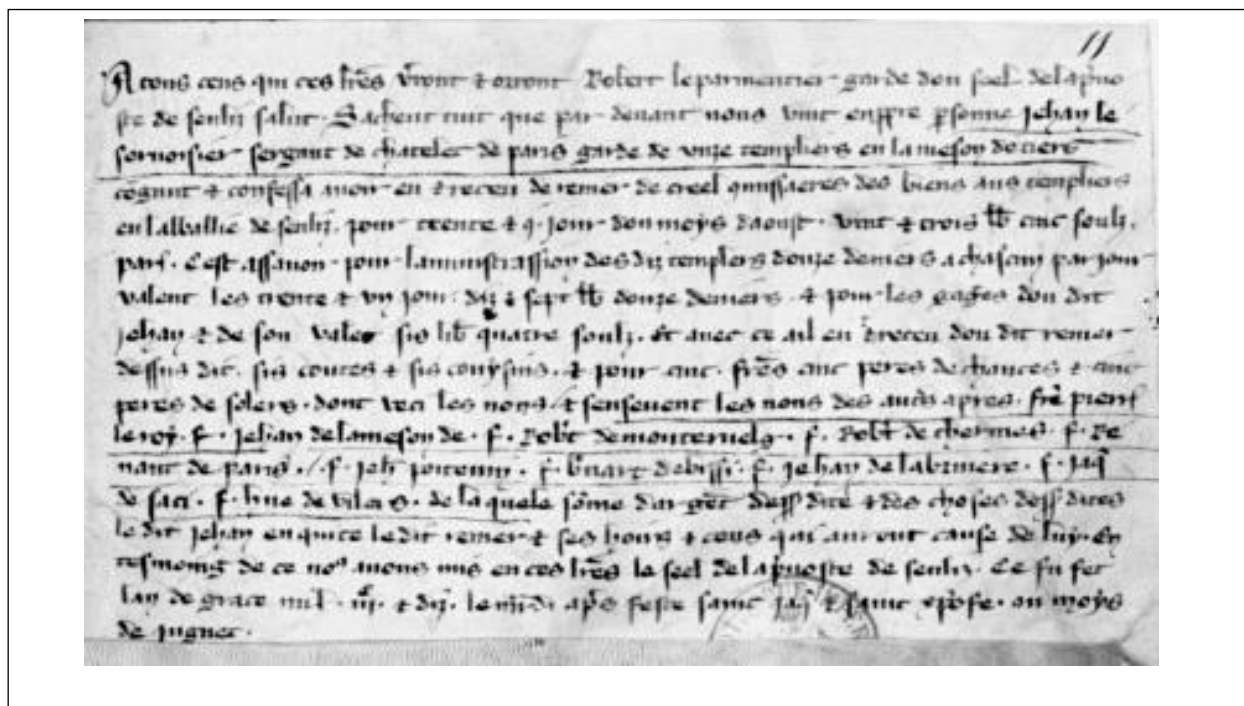 11
A tous ceus qui ces lres vront & orront Robert le parmentier garde dou seel de la pvo
ste de senliz salut. Sachent tuit que par devant nous vint en ppre psonne Jehan le
sergant de chatelet de paris garde de unze templiers en la meson de tiers
cognut & confessa avoir eu & receu de renier de creel des biens aus templiers
en la ballie de senliz. pour trente & .j. jour dou moys daoust. vint & trois lb cinc soulz.
par. cest assavoir pour laministrassion des diz templiers douze deniers a chascun par jour
valent les trente & un jour diz & sept lb douze deniers. & pour les gages dou dit
Jehan & de son valet sis lib quatre soulz. Et avec ce a il eu & receu dou dit renier
dessus dit. sis coutes & sis coussins. & pour cinc. freres cinc peres de chauces & cinc
peres de solers. dont veci les nons. & sensevent les nons des autres apres. fre pierre
le roy. f. Jehan de la meson de. f. Robt de. f. Robt de chermes. f. Re
naut de paris. f. Jeh. f. de bissi. f. Jehan de la bruiere. f. Jaq
de saci. f. hue de vilers. de la quele some dargent dess dite & des choses dess dites
le dit Jehan en quite le dit renier & ses hoirs & tous qui auront cause de luy. En
tesmoing de ce nos avons mis en ces lres le seel de la pvoste de senliz. Ce fu fet
lan de grace mil. iij. & diz. le apres feste saint Jaq & saint xpofe. ou moys
de jugnet.